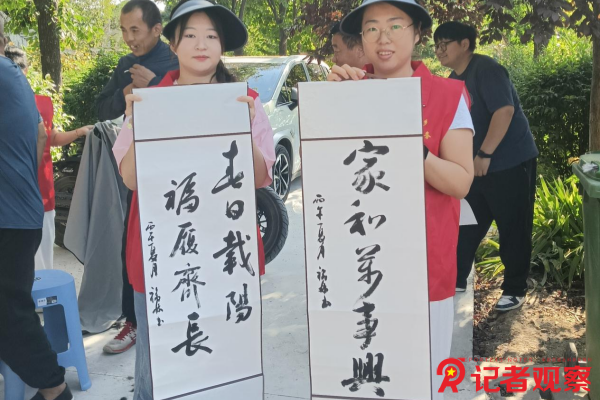 春日載陽
福履齊長
丙午夏月
家和萬事興
丙午夏月
记者观察